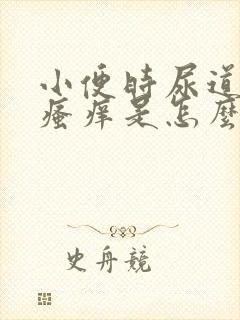 小便时尿道
瘙痒是怎麼
史舟競